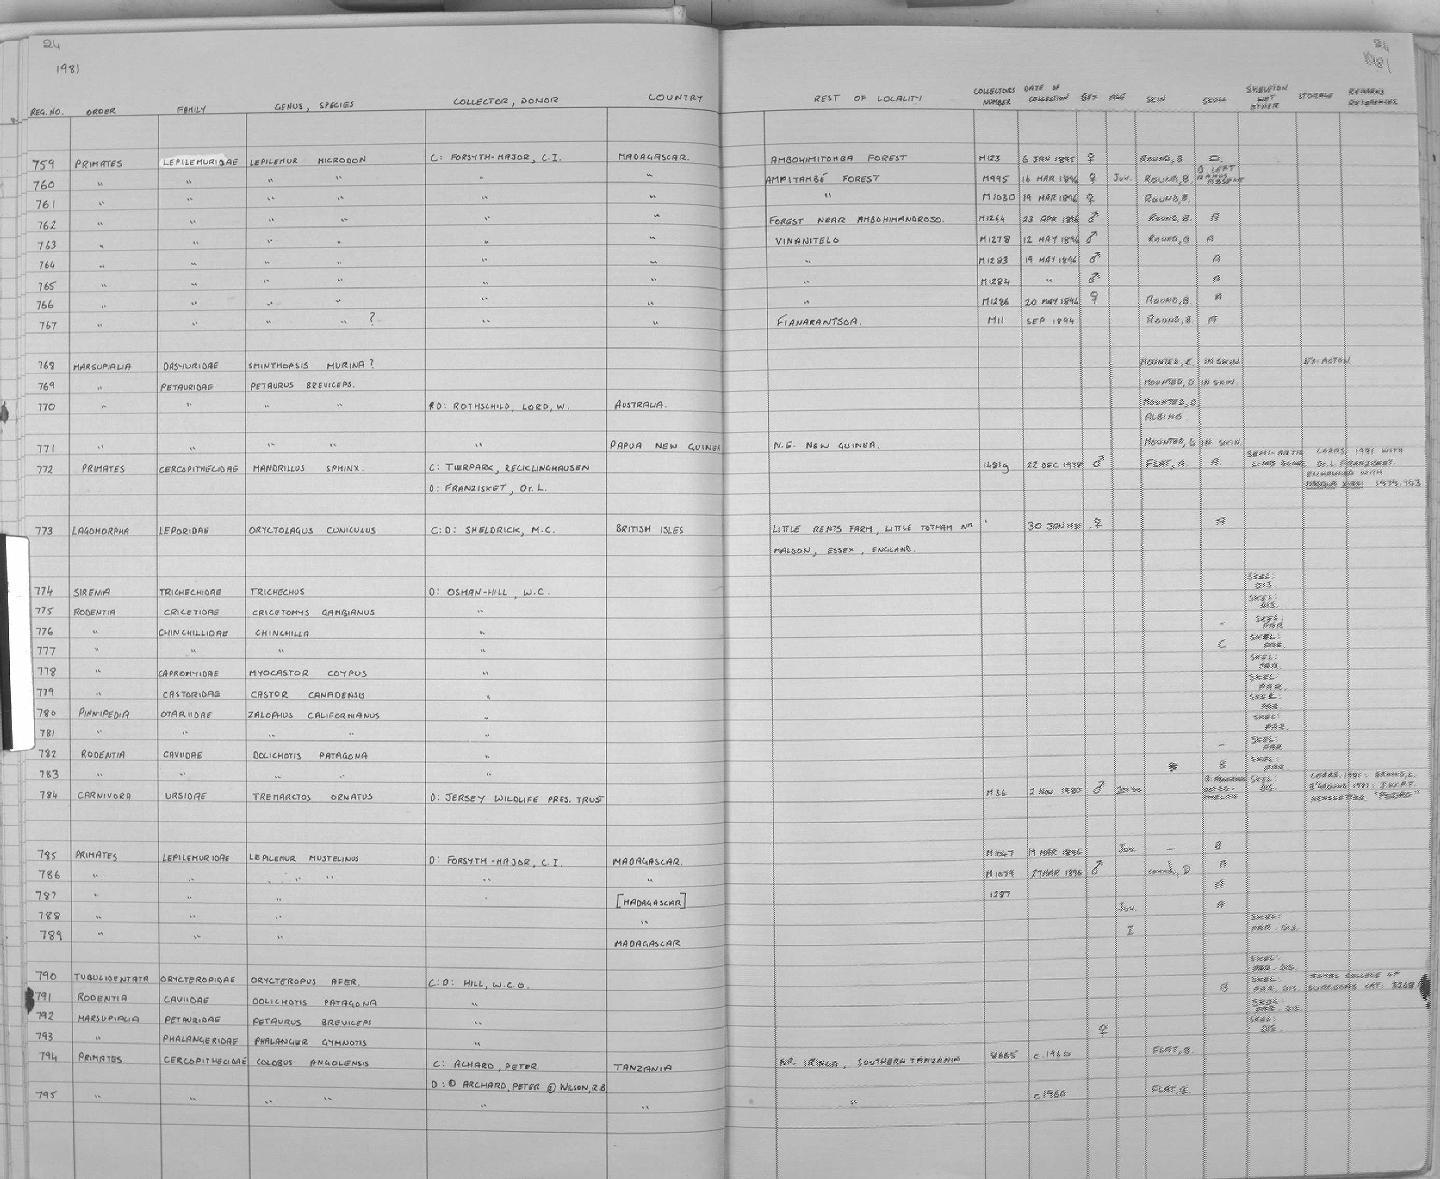 24
1981
24
1981
REG. NO. ORDER FAMILY GENUS, SPECIES COLLECTOR, DONOR COUNTRY REST OF LOCALITY COLLECTORS NUMBER DATE OF COLLECTION SEX AGE SKIN SKULL SKELETON WET OTHER STORAGE REMARKS REFERENCES
759 PRIMATES LEPILEMURIDAE LEPILEMUR MICRODON C: FORSYTH-MAJOR, C.I. MADAGASCAR. AMBOHIMITOMBA FOREST M123 6 JAN 1895 ♀ ROUND, B
760 " " " " " " AMPITAMBÉ FOREST M995 16 MAR 1896 ♀ Juv. ROUND, B. LEFT RAMUS ABSENT
761 " " " " " " " M1030 19 MAR 1896 ♀ ROUND, B.
762 " " " " " " FOREST NEAR AMBOHIMANDROSO. M1264 23 APR 1896 ♂ ROUND, B. B
763 " " " " " " VINANITELO M1278 12 MAY 1896 ♂ ROUND, B B
764 " " " " " " " M1283 19 MAY 1896 ♂ B
765 " " " " " " " M1284 " ♂ B
766 " " " " " " " M1286 20 MAY 1896 ♀ ROUND, B. B
767 " " " " ? " " FIANARANTSOA. M11 SEP 1894 ROUND, B.
768 MARSUPIALIA DASYURIDAE SMINTHOPSIS MURINA? MOUNTED, E IN SKIN EX. ACTON
769 " PETAURIDAE PETAURUS BREVICEPS. MOUNTED, D IN SKIN
770 " " " " D: ROTHSCHILD, LORD, W. AUSTRALIA. MOUNTED, D
ALBINO
771 " " " " " PAPUA NEW GUINEA N.E. NEW GUINEA. MOUNTED, D IN SKIN.
772 PRIMATES CERCOPITHECIDAE MANDRILLUS SPHINX. C: TIERPARK, RECKLINGHAUSEN 22 DEC 1978 ♂ FLAT, A. A. LOARS 1981 WITH
D: FRANZISKET, Dr. L. Dr. L FRANZISKET
EXCHANGED WITH
1979.953
773 LAGOMORPHA LEPORIDAE ORYCTOLAGUS CUNICULUS C:D: SHELDRICK, M.C. BRITISH ISLES LITTLE RENTS FARM, LITTLE TOTHAM NR 30 JAN ♀
MALDON, ESSEX, ENGLAND.
774 SIRENIA TRICHECHIDAE TRICHECHUS D: OSMAN-HILL, W.C. SKEL: DIS
775 RODENTIA CRICETIDAE CRICETOMYS GAMBIANUS " SKEL: DIS.
776 " CHINCHILLIDAE CHINCHILLA " - SKEL: PAR
777 " " " " C SKEL: PAR
778 " CAPROMYIDAE MYOCASTOR COYPUS " SKEL: PAR
779 " CASTORIDAE CASTOR CANADENSIS " SKEL: PAR.
780 PINNIPEDIA OTARIIDAE ZALOPHUS CALIFORNIANUS " SKEL: PAR
781 " " " " " SKEL: PAR
782 RODENTIA CAVIIDAE DOLICHOTIS PATAGONA " - SKEL: PAR
783 " " " " " B SKEL: PAR
784 CARNIVORA URSIDAE TREMARCTOS ORNATUS D: JERSEY WILDLIFE PRES. TRUST M36 2 NOV 1980 ♂ SKEL: DIS.
785 PRIMATES LEPILEMURIDAE LEPILEMUR MUSTELINUS D: FORSYTH-MAJOR, C.I. MADAGASCAR. M1047 19 MAR 1896 Juv. - B
786 " " " " " " M1079 27 MAR 1896 ♂ round, D B
787 " " " " [MADAGASCAR] 1287
788 " " " " Juv. B
789 " " " MADAGASCAR SKEL: PAR. DIS.
790 TUBULIDENTATA ORYCTEROPIDAE ORYCTEROPUS AFER. C:D: HILL, W.C.O. SKEL: PAR. DIS.
791 RODENTIA CAVIIDAE DOLICHOTIS PATAGONA " B SKEL: PAR. DIS. ROYAL COLLEGE OF SURGEONS CAT.
792 MARSUPIALIA PETAURIDAE PETAURUS BREVICEPS " SKEL: PAR. DIS.
793 " PHALANGERIDAE PHALANGER GYMNOTIS " ♀ SKEL: DIS.
794 PRIMATES CERCOPITHECIDAE COLOBUS ANGOLENSIS C: ACHARD, PETER TANZANIA NR. IRINGA, SOUTHERN TANZANIA c.1960 FLAT, B.
D: ARCHARD, PETER WILSON, R.B
795 " " " " " " " c 1960 FLAT,